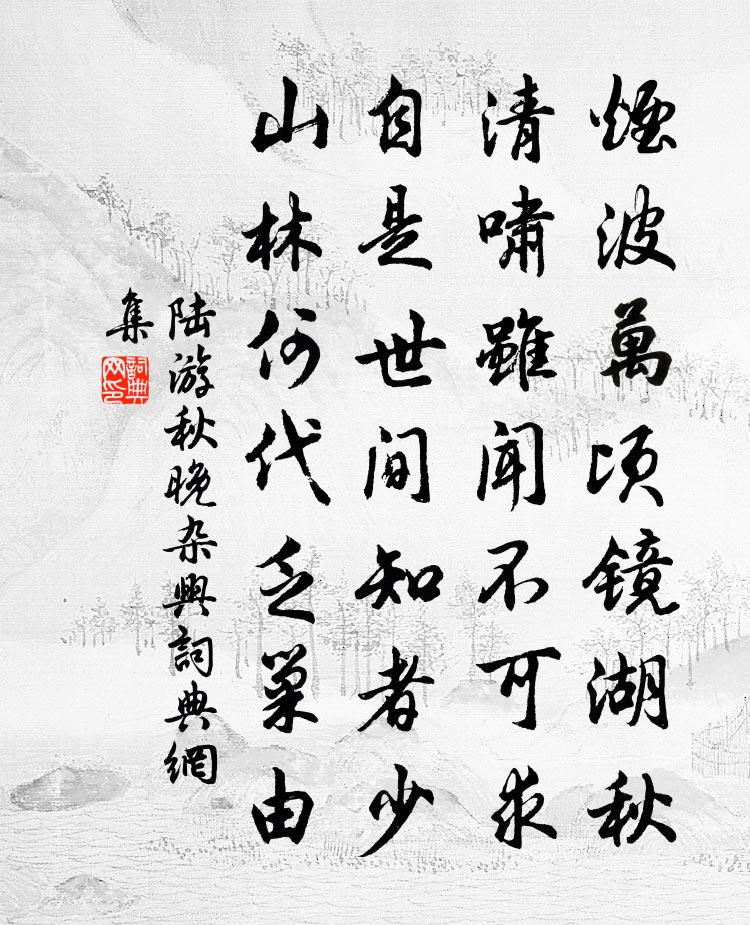 煙波萬頃鏡湖秋
清嘯雖聞不可求
自是世間知者少
山林何代乏巢由
陆游秋晚杂興詞典網
集
詞典网印